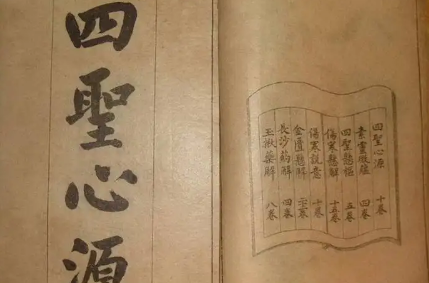 四聖心源
四聖心源 十卷
素靈微蘊 四卷
四聖懸樞 五卷
傷寒懸解 十五卷
傷寒說意 十卷
金匱懸解 二十二卷
長沙葯解 四卷
玉楸葯解 八卷